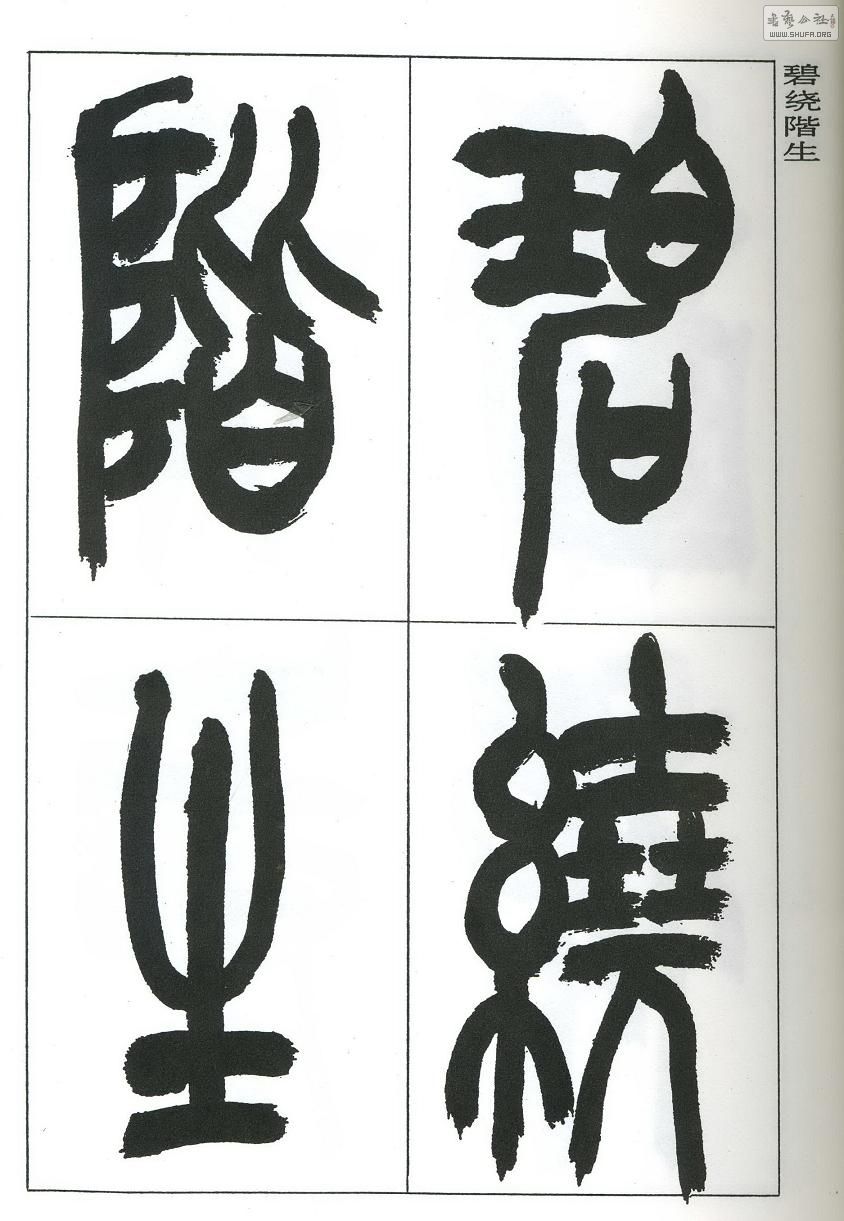 碧繞
階生
碧绕階生
書藝公社
WWW.SHUFA.ORG